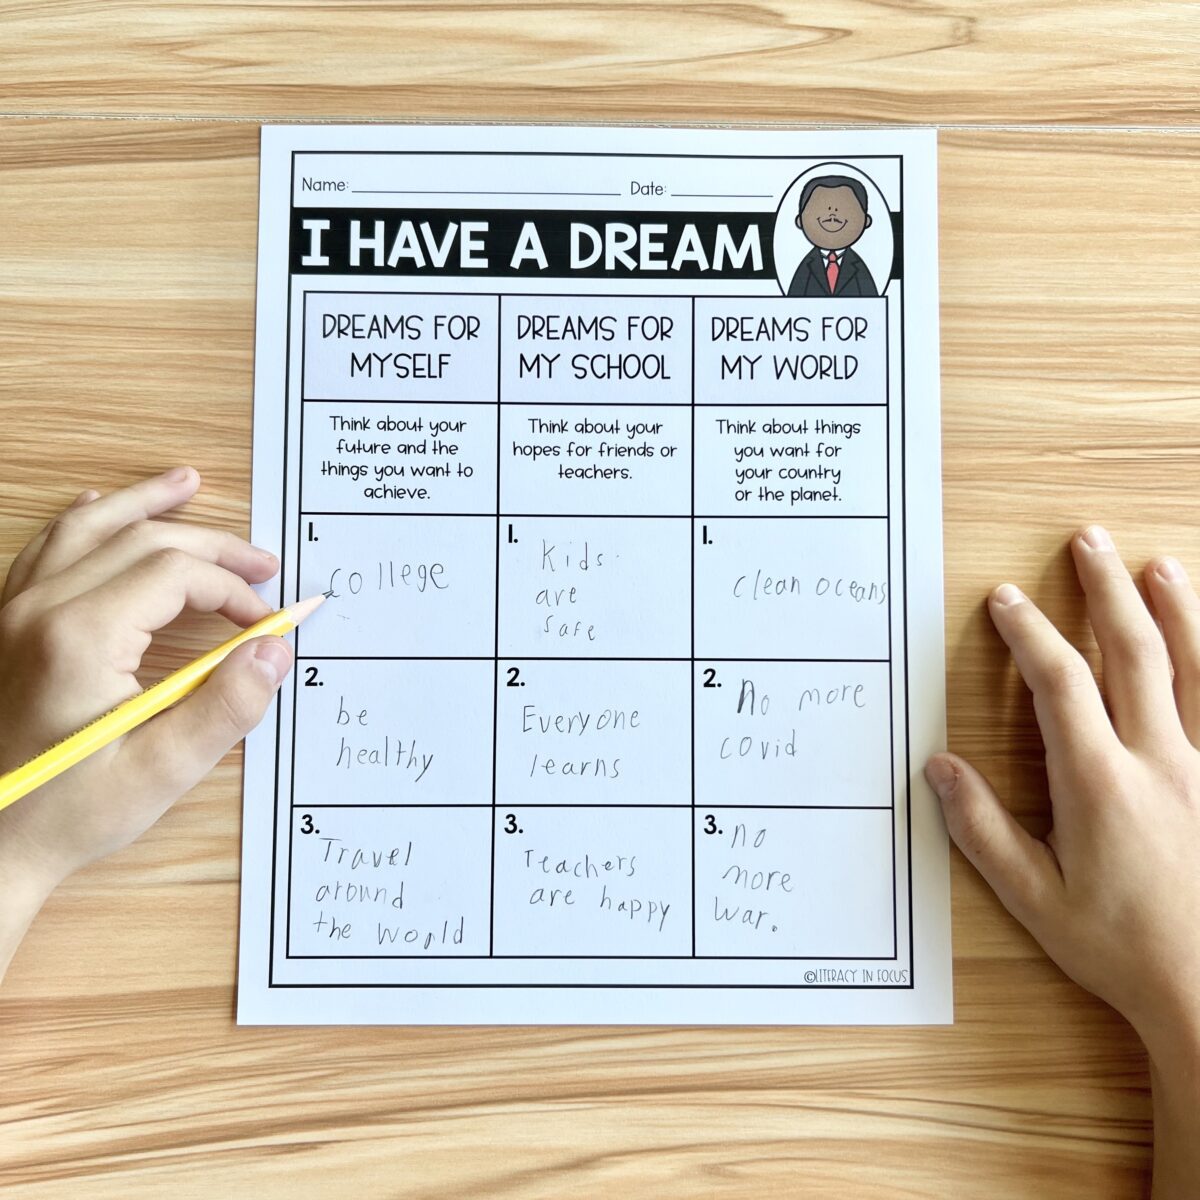 Name: Date:
I HAVE A DREAM
DREAMS FOR
MYSELF
DREAMS FOR
MY SCHOOL
DREAMS FOR
MY WORLD
Think about your
future and the
things you want to
achieve.
Think about your
hopes for friends or
teachers.
Think about things
you want for
your country
or the planet.
1.
college
1.
Kids
are
safe
1.
clean oceans
2.
be
healthy
2.
Everyone
learns
2.
No more
covid
3.
Travel
around
the world
3.
Teachers
are happy
3.
no
more
war.
©LITERACY IN FOCUS